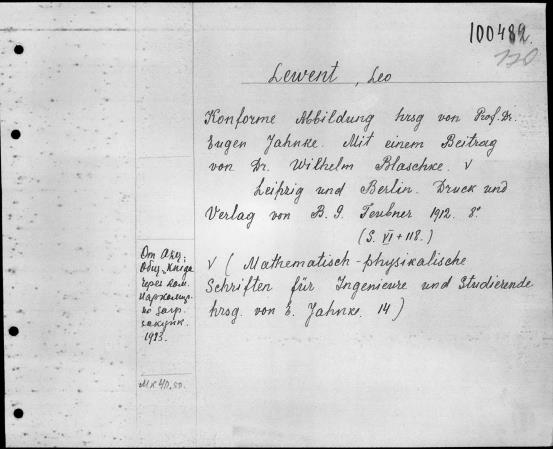 100482.
120
Lewent, Leo
Konforme Abbildung hrsg von Prof. Dr.
Eugen Jahnke. Mit einem Beitrag
von Dr. Wilhelm Blaschke. v
Leipzig und Berlin. Druck und
Verlag von B. G. Teubner 1912. 8°
(S. VI + 118.)
v (Mathematisch-physikalische
Schriften für Ingenieure und Studierende
hrsg. von E. Jahnke. 14)
От Акц.
Общ. „Книга
через ком.
по загр.
закупк.
1923.